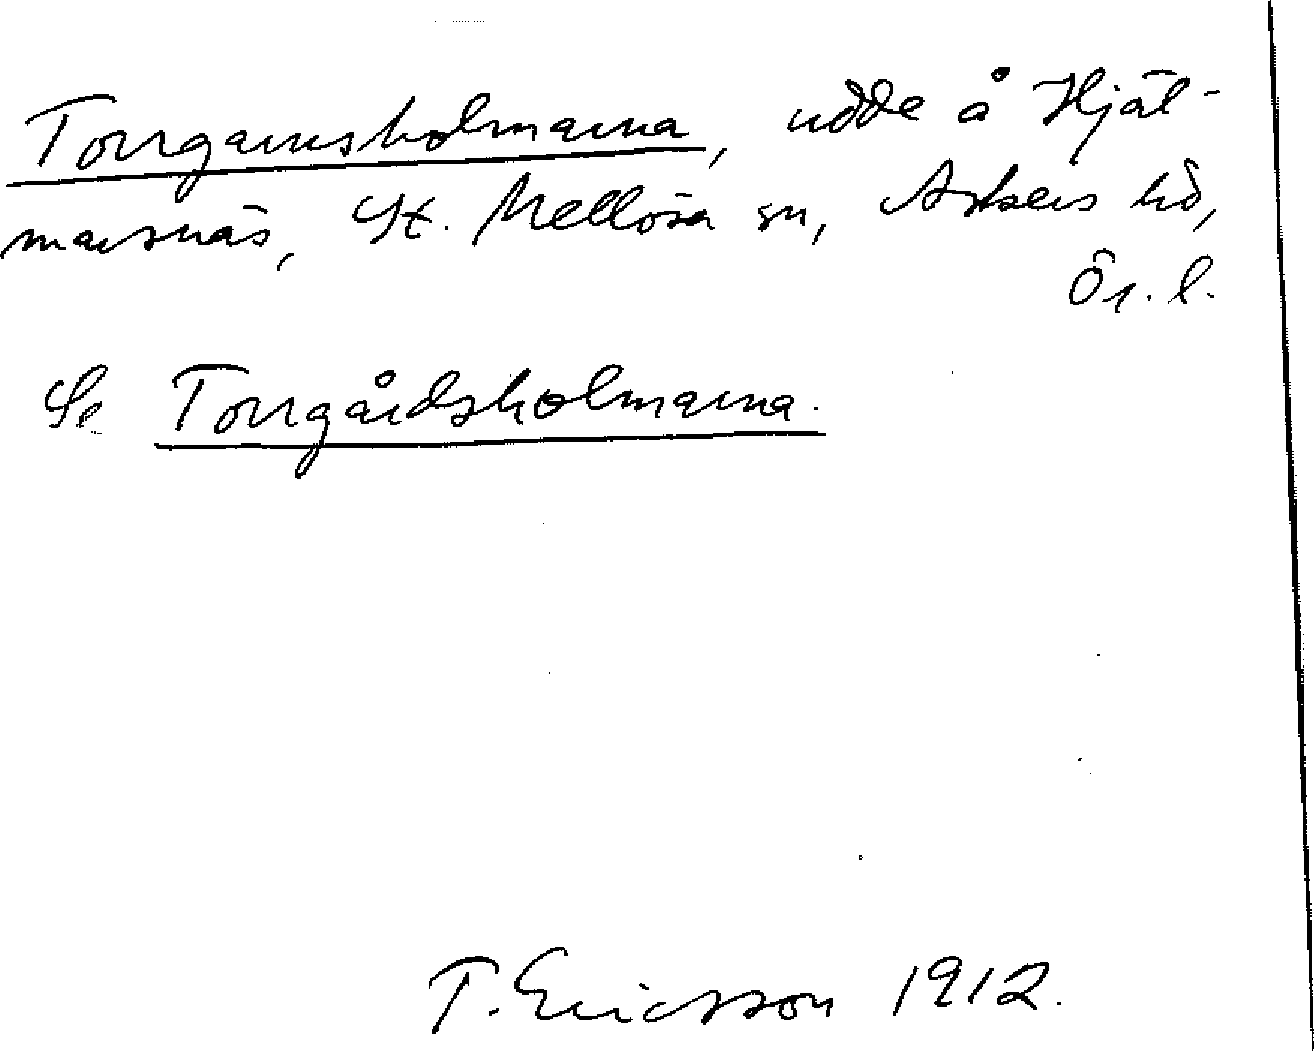 Torrgarnsholmarna, udde å Hjäl-
marsnäs, St. Mellösa sn, Askers hd,
Ör. l.
Se Torrgårdsholmarna.
T. Ericsson 1912.